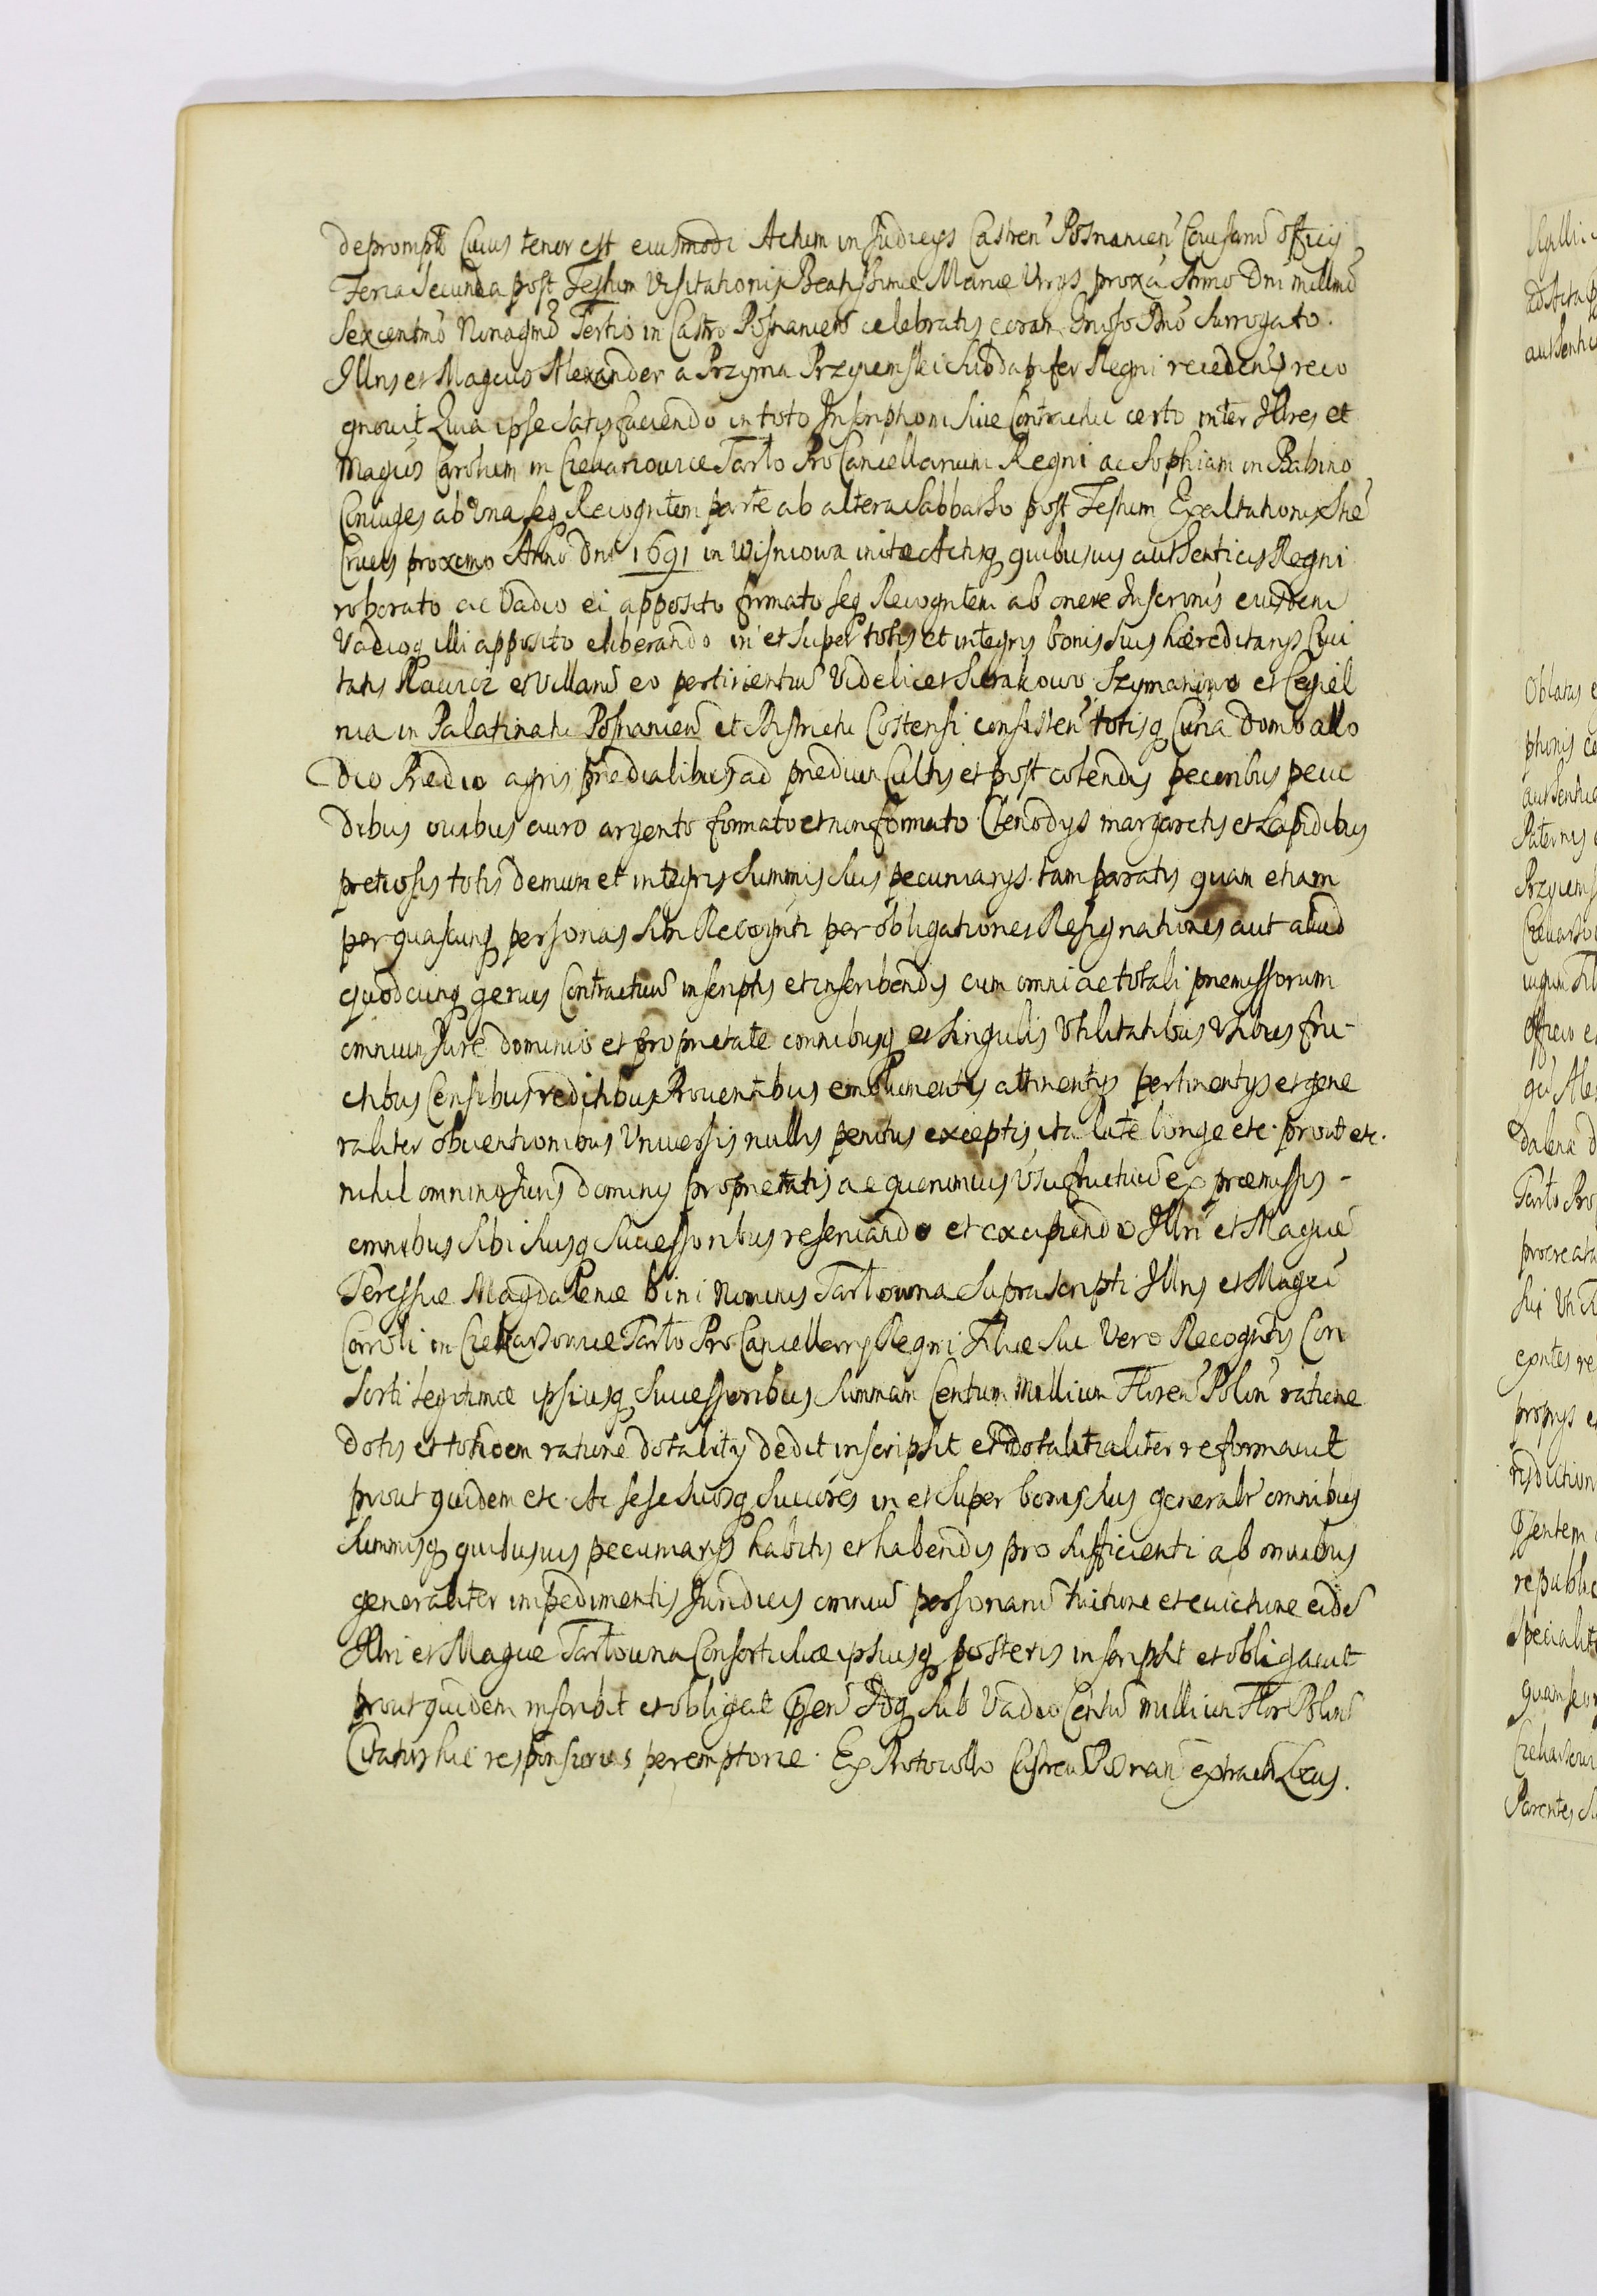 deprompti Cuius tenor est eiusmodi Actum in Judicijs Castren̄ Posnanien̄ Causarū officij
Feria Secunda post Festum Visitationis Beatissimæ Mariæ Vrgs proxa Anno Dni millmō
Sexcentmō Nonagmō Tertio in Castro Posnanien̄ celebratis coram Gnoso Dnō Surrogato.
Jllris et Magcus Alexander a Przyma Przyiemski Subdapifer Regni recedens reco
gnouit Quia ipse Satisfaciendo in toto Inscriptioni Siue Contractui certo inter Jllres et
Magcos Carolum in Czekarzowice Tarlo ProCancellarium Regni ac Sophiam in Babino
Coniuges ab una Seq Recogntem parte ab altera Sabbatho post Festum Exaltationis Stæ
Crucis proximo Anno Dni 1691 in Wisniowa initæ Actisq quibusuis authenticis Regni
roborato ac Vadio ei apposito firmato Seq Recogntem ab onere Inscronis eiusdem
Vadioq illi apposito eliberando in et Super totis et integris bonis Suis hæreditarijs Ciui
tatis Rawicz et Villarū eo pertinentiū Videlicet Sierakowo Szymanowo et Cegiel
nia in Palatinatu Posnanien̄ et Districtu Costensi consisten̄ totisq Curia Domo allo
dio Prædio agris prædialibus ad prædium Cultis et post colendis pecoribus pecu
dibus ouibus auro argento formato et non formato Clenodys margaretis et Lapidibus
pretiosis totis demum et integris Summis Suis pecuniarys tam paratis quam etiam
per quascunq personas Sibi Recognti per obligationes Resignationes aut aliud
quodcunq genus Contractuū inscriptis et inscribendis cum omni ac totali præmissorum
omnium Jure dominio et proprietate omnibusq et Singulis Vtilitatibus Vsibus fru-
ctibus Censibus reditibus Prouentibus emolumentis attinentys pertinentys et gene
raliter obuentionibus Vniuersis nullis penitus exceptis ita late longe etc. prout etc.
nihil omnino Juris dominy proprietatis ac quoruniuis Vsufructuū ex præmissis -
omnibus Sibi Suisq Successoribus reseruando et excipiendo Jllri et Magcæ
Teressiæ Magdalenæ bini nominis Tarlowna Suprascripti Jllris et Magci
Caroli in Czekarzowice Tarlo ProCancellary Regni Filiæ Suæ Vero Recogntis Con
sorti legitimæ ipsiusq Successoribus Summam Centum Millium Floren̄ Polon̄ ratione
dotis et totidem ratione dotality dedit inscripsit et dotalitialiter reformauit
prout quidem etc. Ac sese Suosq Succores in et Super bonis Suis generalr omnibus
Summisq quibusuis pecuniarys habitis et habendis pro Sufficienti ab omnibus
generaliter impedimentis Juridicis omniū personarū tuitione et euictione eidē
Jllri et Magcæ Tarlowna Consorti Suæ ipsiusq posteris inscripsit et obligauit
prout quidem inscribit et obligat psen̄ Idq Sub Vadio Centū millium Flor Polon̄
Citatus hic responsurus peremptorie. Ex Protocollo Castren̄ Posnan̄ extractū Locus.